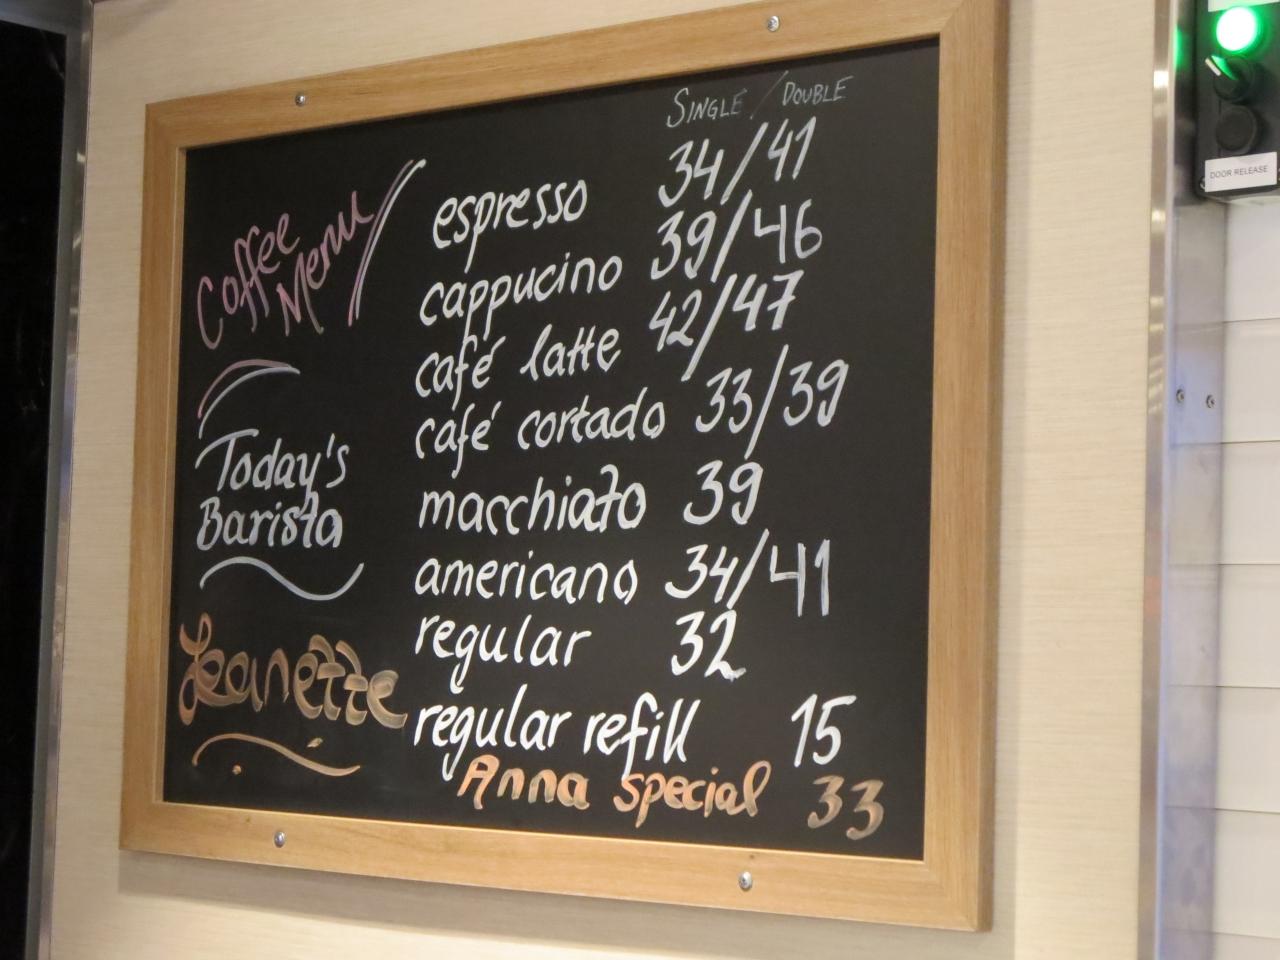 Coffee
Menu
Today's
Barista
Jeanette
SINGLE / DOUBLE
espresso 34/41
cappucino 39/46
café latte 42/47
café cortado 33/39
macchiato 39
americano 34/41
regular 32
regular refill 15
Anna special 33
DOOR RELEASE